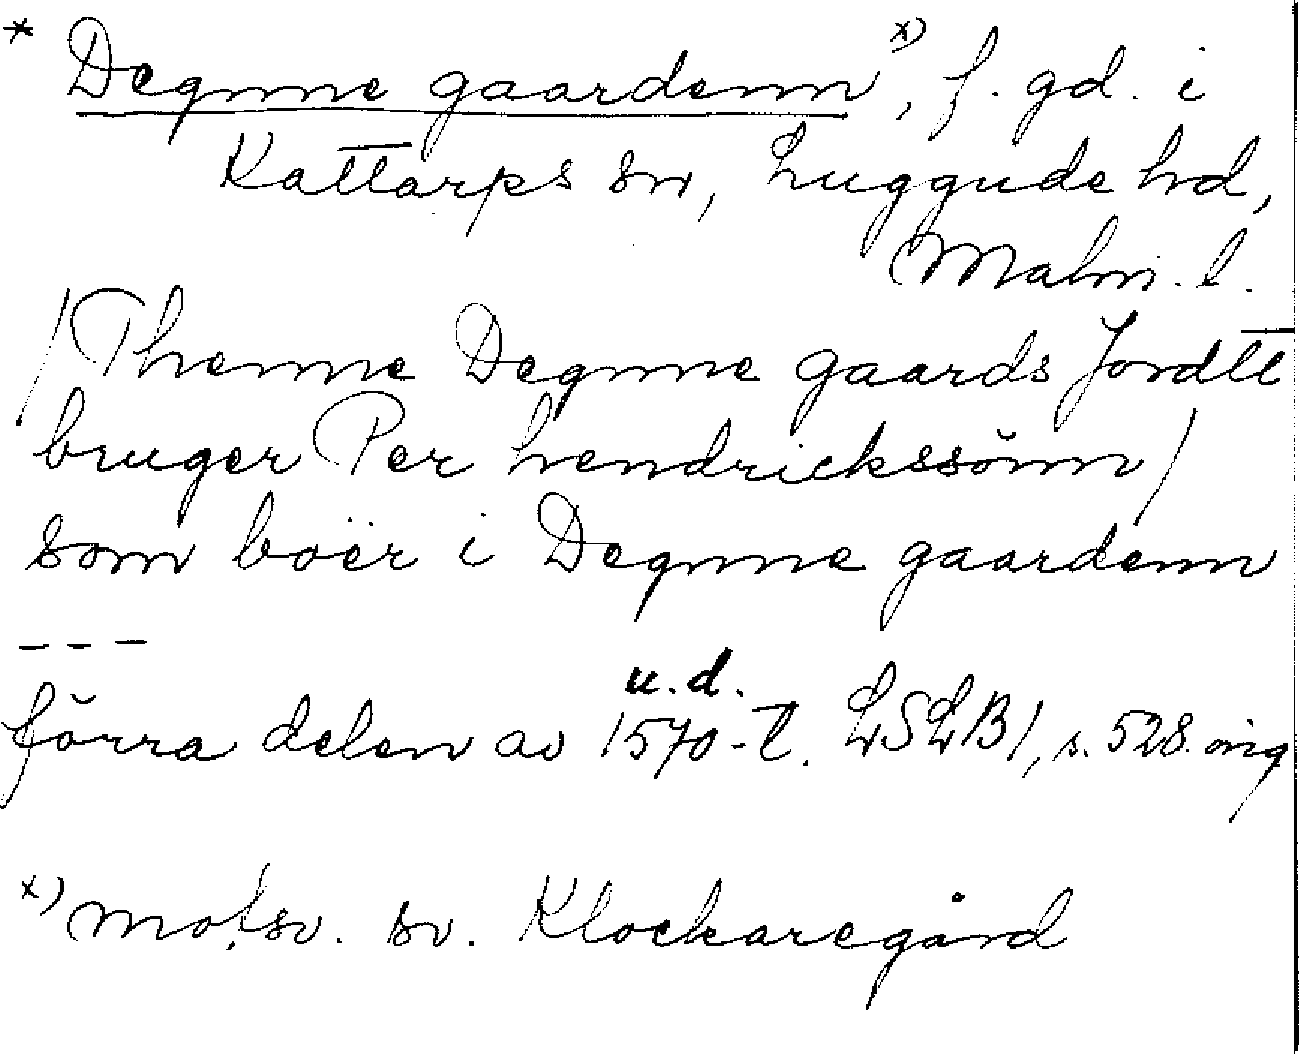 * Degnne gaardenn x), f. gd. i
Kattarps sn, Luggude hd,
Malm. l.
/Thenne Degnne gaards Jordtt
bruger Per hendrickssönn/
som boër i Degnne gaardenn
---
u.d.
förra delen av 1570-t. LSLB1, s. 528. orig
x) motsv. sv. Klockaregård